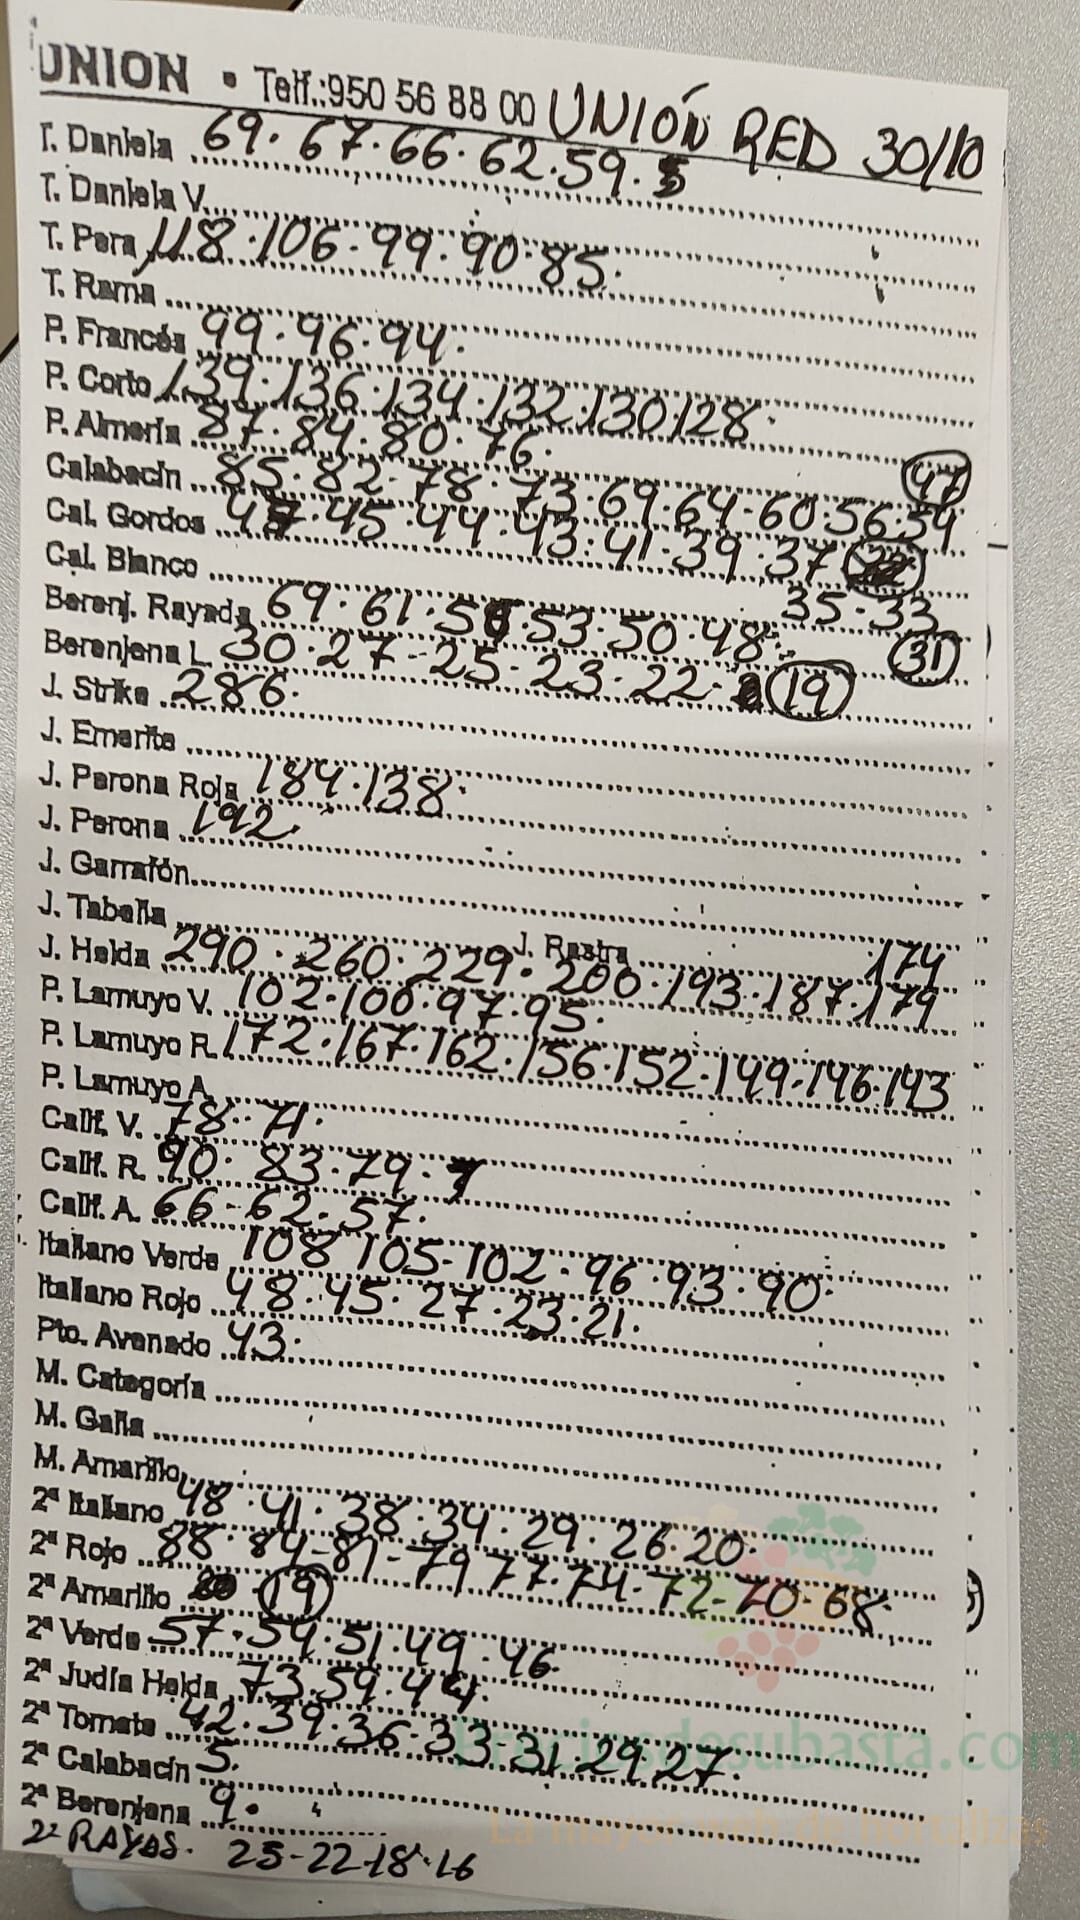 UNION • Telf.:950 56 88 00 UNIÓN RED 30/10
T. Daniela 69. 67. 66. 62. 59.
T. Daniela V.
T. Pera 118. 106. 99. 90. 85.
T. Rama
P. Francés 99. 96. 94.
P. Corto 139. 136. 134. 132. 130 128.
P. Almería 87. 84. 80. 76.
47
Calabacín 85. 82- 78. 73. 69. 64- 60. 56. 54
Cal. Gordos 47. 45. 44. 43. 41- 39. 37
35-33
Cal. Blanco
31
Berenj. Rayada 69. 61. 56. 53. 50. 48.
Berenjena L. 30. 27- 25- 23. 22- 19
J. Strike 286.
J. Emerite
J. Perona Roja 184. 138.
J. Perona 192.
J. Garrafón
J. Tabella J. Rastra 174
J. Helda 290. 260. 229. 200. 193. 187. 179
P. Lamuyo V. 102. 100. 97. 95.
P. Lamuyo R. 172. 167. 162. 156. 152. 149. 146. 143
P. Lamuyo A.
Calif. V. 78. 71.
Calif. R. 90. 83. 79.
Calif. A. 66- 62. 57.
Italiano Verde 108 105- 102. 96. 93. 90.
Italiano Rojo 48. 45. 27. 23. 21.
Pto. Avenado 43.
M. Categoría
M. Galia
M. Amarillo
2ª Italiano 48. 41. 38. 34. 29. 26. 20.
2ª Rojo 88. 84- 81- 79 77. 74- 72- 70. 68.
2ª Amarillo 19
2ª Verde 57. 54. 51. 49. 46.
2ª Judía Helda 73. 59. 44.
2ª Tomate 42. 39. 36- 33- 31. 29. 27.
2ª Calabacín 5.
2ª Berenjena 9.
2ª RAYAS. 25-22-18.16
Preciosdesubasta.com
La mayor web de hortalizas